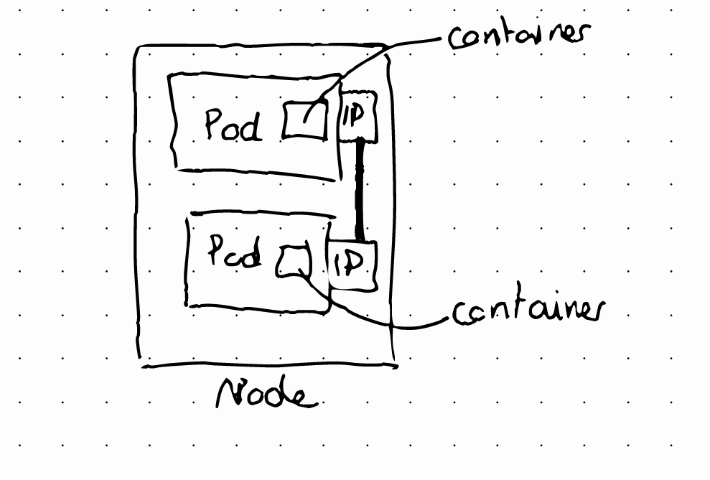 container
Pod
IP
Pod
IP
container
Node